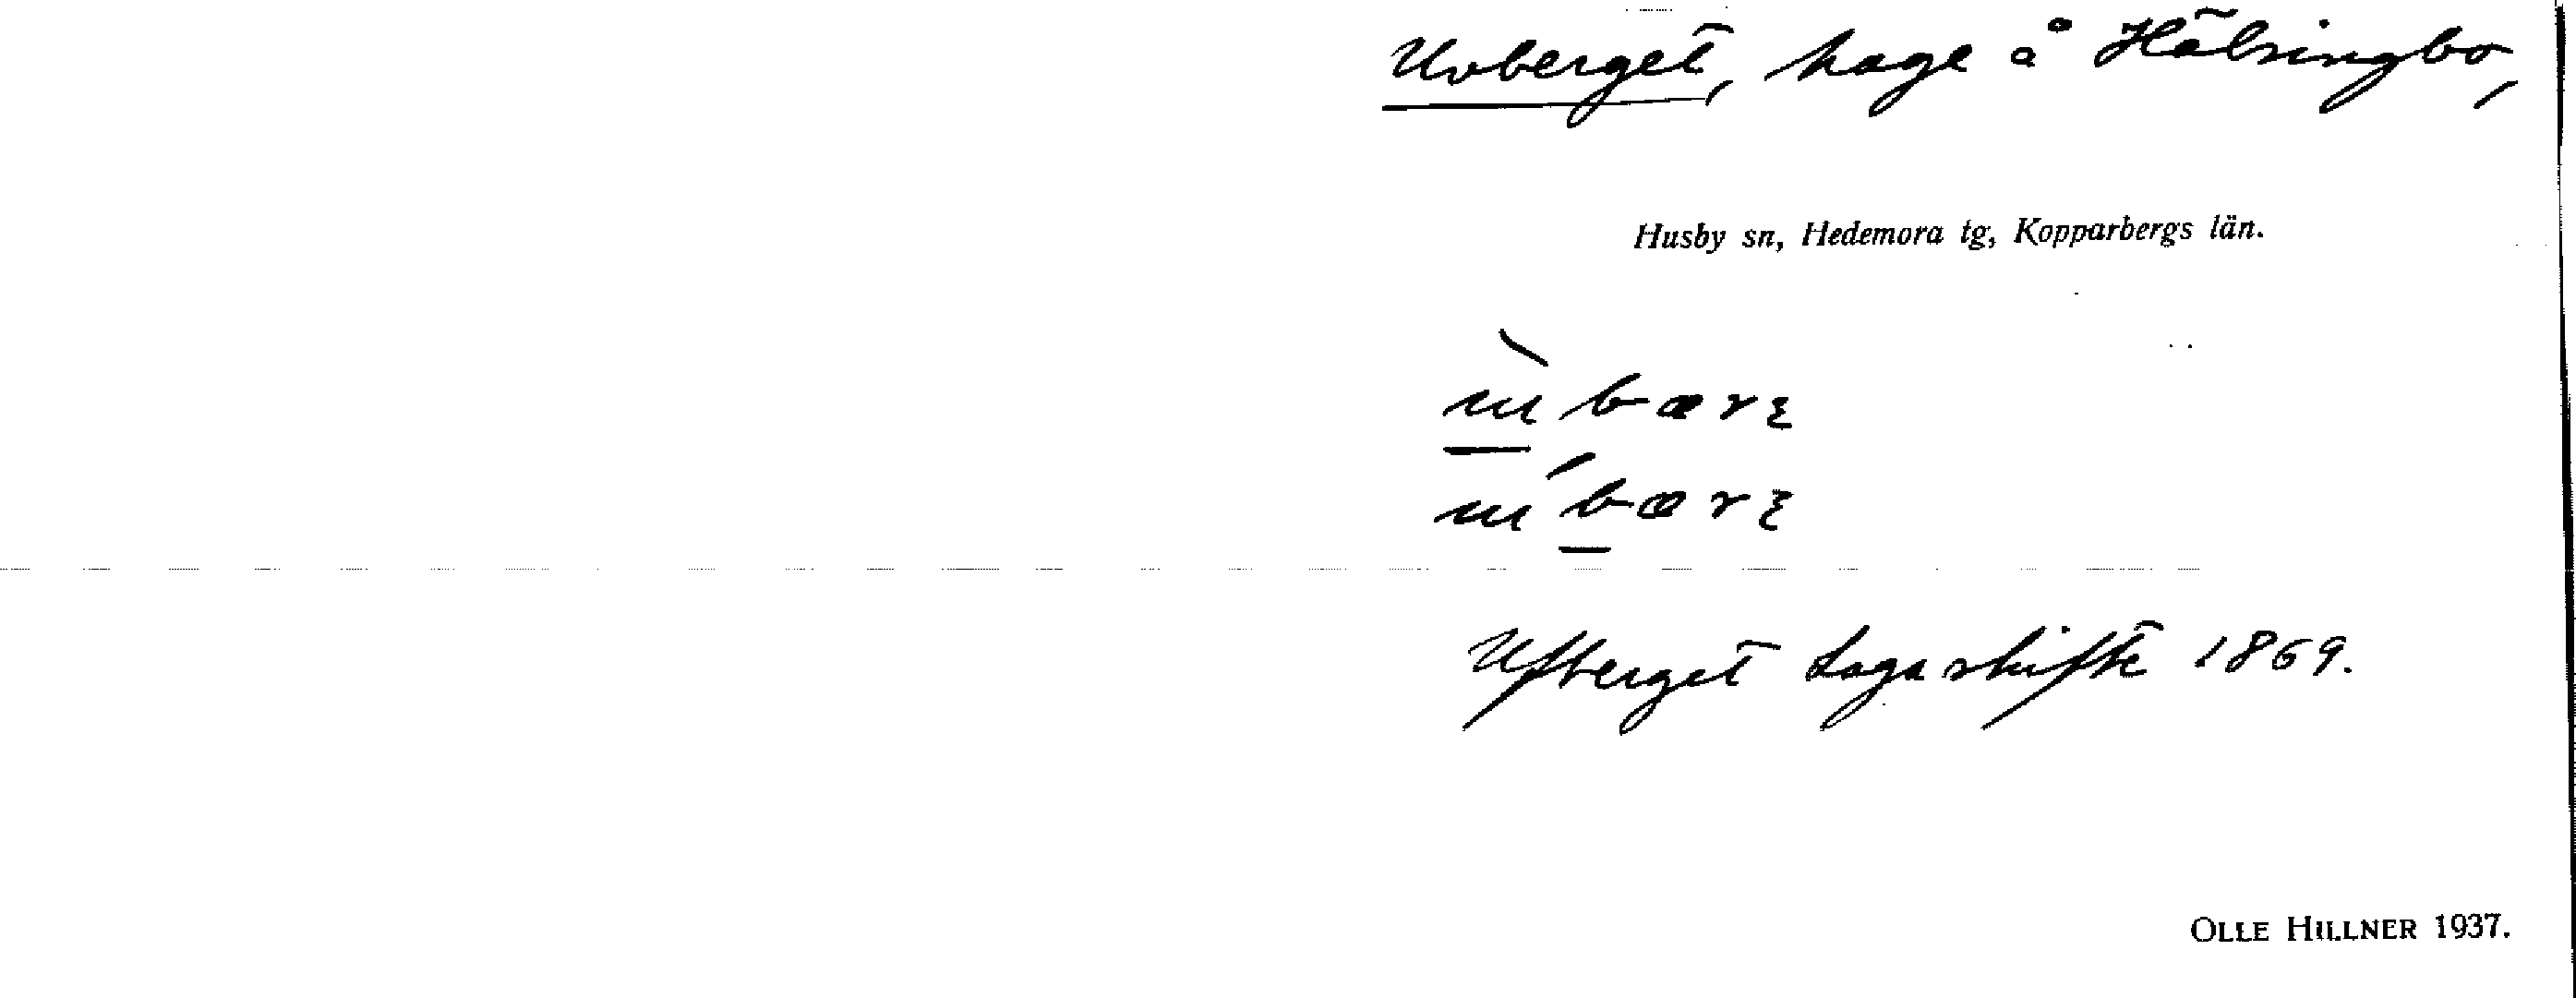 Uvberget, hage å Hälsingbo,
Husby sn, Hedemora tg, Kopparbergs län.
Ufberget Laga skifte 1869.
OLLE HILLNER 1937.